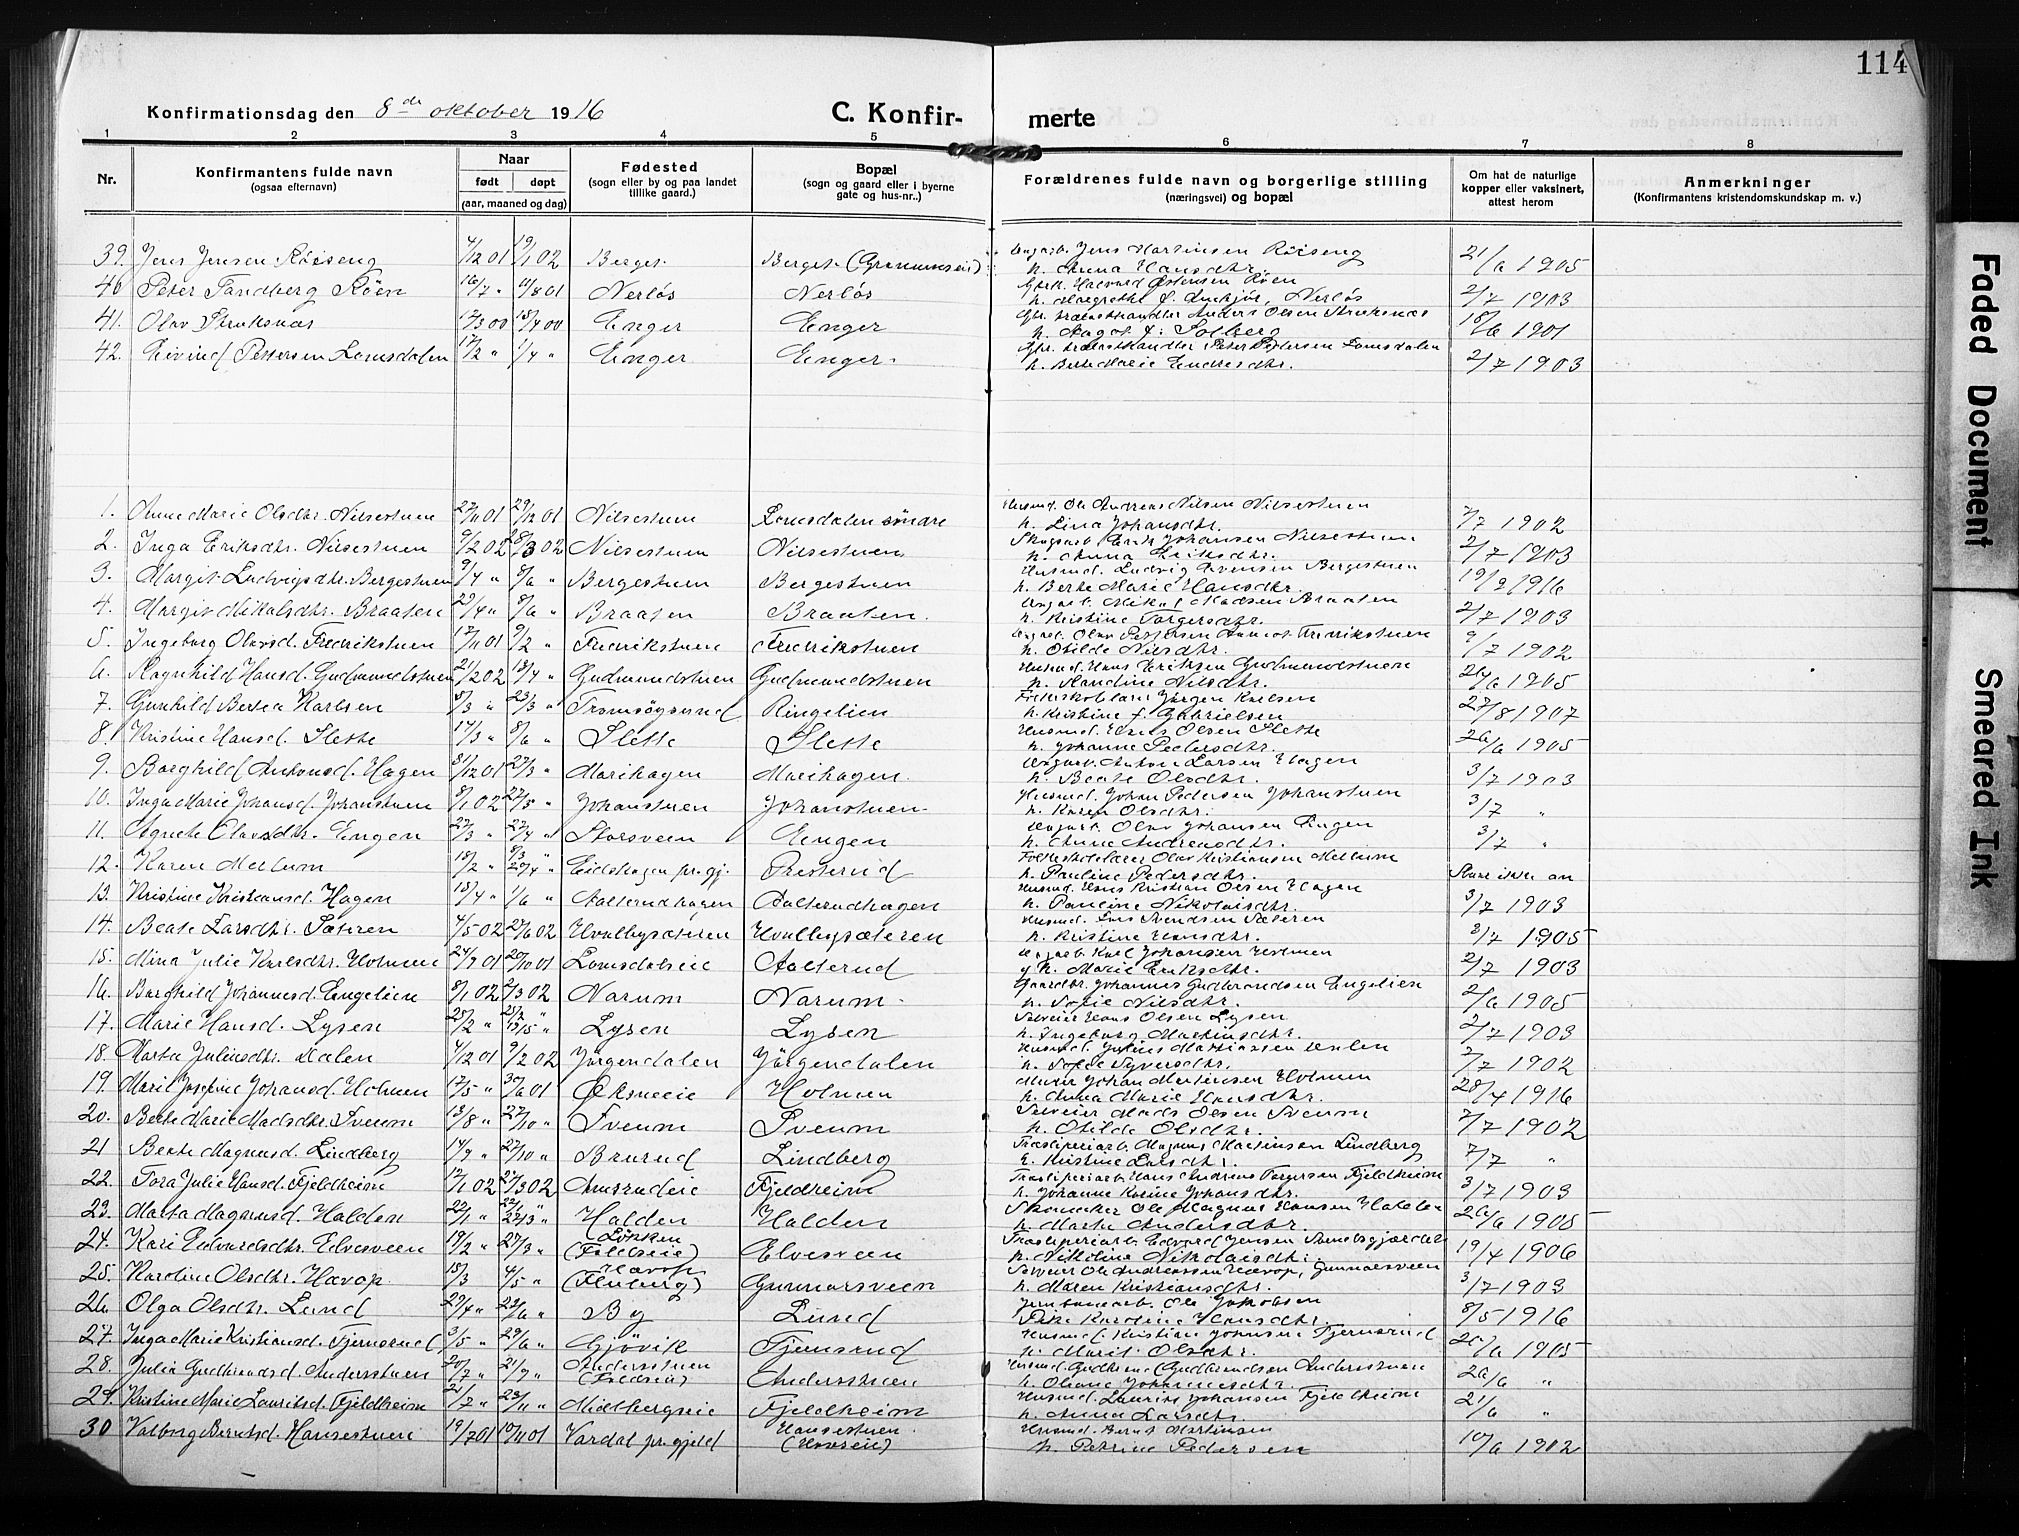 114
Konfirmationsdag den 8de oktober 1916 C. Konfir- merte
1 2 3 4 5 6 7 8
Nr. Konfirmantens fulde navn (ogsaa efternavn) Naar født døpt (aar, maaned og dag) Fødested (sogn eller by og paa landet tillike gaard.) Bopæl (sogn og gaard eller i byerne gate og hus-nr..) Forældrenes fulde navn og borgerlige stilling (næringsvei) og bopæl Om hat de naturlige kopper eller vaksinert, attest herom Anmerkninger (Konfirmantens kristendomskundskap m. v.)
39. Jens Jensen Röiseng 4/12 01 19/1 02 Berget Jens Martinsen Röiseng h. Anna Hansdtr. 21/6 1905
40 Peter Tandberg Röen 16/7 " 11/8 01 Nerlös Nerlös Halvard Östensen Röen Nerlös 2/7 1903
41. Olav Struksnæs 12/3 00 15/4 00 Enger Enger Anders Olsen Struksnæs h. Aagot f. Solberg 18/6 1901
42. Eivind Pettersen Lomsdalen 17/2 " 1/4 " Enger Enger. Peter Pedersen Lomsdalen h. Berte Marie Endresdtr. 2/7 1903
1. Anne Marie Olsdtr. Nilsestuen 27/11 01 29/12 01 Nilsestuen Lomsdalen söndre Husmd. Ole Andreas Nilsen Nilsestuen h. Lina Johansdtr. 7/7 1902
2. Inga Eriksdtr. Nilsestuen 9/2 02 28/3 02 Nilsestuen Nilsestuen Erik Johansen Nilsestuen h. Anna Eriksdtr. 2/7 1903
3. Margit Ludvigsdtr. Bergestuen 9/4 " 8/6 " Bergestuen Bergestuen Husmd. Ludvig Evensen Bergestuen h. Berte Marie Hansdtr. 19/2 1916
4. Margit Nikolsdtr. Braaten 29/4 " 8/6 " Braaten Braaten. Madsen Braaten h. Kristine Torgersdtr. 2/7 1903
5. Ingeborg Olavsd. Fredrikstuen 17/11 01 9/2 " Fredrikstuen Fredrikstuen Olav Pettersen Fredrikstuen h. Otilde Nilsdtr. 9/7 1902
6. Ragnhild Hansd. Gudmundstuen 21/2 02 13/4 " Gudmundstuen Gudmundstuen Husmd. Hans Eriksen Gudmundstuen h. Handine Nilsdtr. 26/6 1905
7. Gunhild Bertea Karlsen 5/3 " 23/3 " Ringelien Jörgen Karlsen h. Kristine f. Gabrielsen 27/8 1907
8. Kristine Hansd. Slette 17/3 " 8/6 " Slette Slette Husmd. Hans Olsen Slette h. Johanne Pedersdtr. 26/6 1905
9. Borghild Antonsd. Hagen 31/12 01 27/3 " Marihagen Marihagen. Anton Larsen Hagen h. Beate Olsdtr. 3/7 1903
10. Inga Marie Johansd. Johanstuen 8/1 02 22/5 " Johanstuen Johanstuen Husmd. Johan Pedersen Johanstuen h. Karen Olsdtr. 3/7 "
11. Agnete Olavsdtr. Engen 27/3 " 27/4 " Storsveen Engen Olav Johansen Engen h. Anne Andreasdtr. 3/7 "
12. Karen Mellum 18/2 " 8/3 " 20/4 " Eidskogen pr.gj. Presterud Folkeskolelærer Olav Kristiansen Mellum h. Pauline Pedersdtr. Slaar ikke an
13. Kristine Kristiansd. Hagen 15/4 " 1/6 " Aalterudhagen Aalterudhagen Husmd. Hans Kristian Olsen Hagen h. Pauline Nikolaisdtr. 3/7 1903
14. Beate Larsdtr. Sæteren 4/5 02 27/6 02 Hvalbysæteren Hvalbysæteren Husmd. Lars Svendsen Sæteren h. Kristine Hansdtr. 3/7 1905
15. Mina Julie Karlsdtr. Holmen 24/9 01 20/10 01 Lomsdalseie Aalterud Karl Johansen Holmen h. Marie Eriksdtr. 2/7 1903
16. Borghild Johannesd. Engelien 8/1 02 2/3 02 Narum Narum. Gaardbr. Johannes Gudbrandsen Engelien h. Sofie Nilsdtr. 2/6 1905
17. Marie Hansd. Lysen 25/2 " 13/5 " Lysen Lysen Selveier Hans Olsen Lysen h. Ingeborg Martinsdtr. 2/7 1903
18. Marta Juliusdtr. Dalen 4/12 01 9/2 02 Jörgendalen Jörgendalen Husmd. Julius Mathiassen Dalen h. Sofie Syversdtr. 7/7 1902
19. Marie Josefine Johansd. Holmen 17/5 " 30/6 01 Öksneeie Holmen Murer Johan Mortensen Holmen h. Anna Marie Hansdtr. 28/4 1916
20. Berte Marie Madsdtr. Sveum 13/8 " 27/10 " Sveum Sveum Selveier Mads Olsen Sveum h. Otilde Olsdtr. 7/7 1902
21 Berte Magnusd. Lindberg 14/9 " 27/10 " Brurud Lindberg Træsliperiarb. Magnus Martinsen Lindberg E. Kristine Larsdtr. 7/7 "
22. Tora Julie Hansd. Fjeldheim 12/1 02 2/3 02 Amsrudeie Fjeldheim Træsliperiarb. Hans Andreas Torgersen Fjeldheim h. Johanne Karine Johansdtr. 3/7 1903
23. Marta Magnusd. Halden 22/1 " 22/3 " Halden Halden Skomaker Ole Magnus Hansen Halden h. Marthe Andersdtr. 26/6 1905
24. Kari Edvardsdtr. Elvesveen 19/2 " 27/3 " Lökken Elvesveen Træsliperiarb. Edvard Jensen h. Nikoline Nikolaisdtr. 19/4 1906
25. Karoline Olsdtr. Hævop. 15/3 4/5 " Hævop (Fluberg) Gunnarsveen Selveier Ole Andreassen Hævop, Gunnarsveen h. Maren Kristiansdtr. 3/7 1903
26. Olga Olsdtr. Lund 29/4 " 22/6 " By Lund Jernbanearb. Ole Jakobsen Pike Karoline Hansdtr. 8/5 1916
27. Inga Marie Kristiansd. Tjernsrud 3/5 " 29/6 " Gjövik Tjernsrud Husmd. Kristian Johnsen Tjernsrud h. Marit Olsdtr. 26/6 1905
28. Julia Gudbrandsd. Andersstuen 20/7 " 21/9 " Andersstuen Andersstuen Husmd. Gudbrand Gudbrandsen Andersstuen h. Oliane Johannesdtr. 26/6 "
29. Kristine Marie Lauritsd. Fjeldheim 21/7 " 23/11 " Midtbergseie Fjeldheim Husmd. Laurits Johansen Fjeldheim h. Anna Larsdtr. 21/6 "
30 Valborg Berntsd. Hansestuen 19/7 01 10/11 01 Vardal pr.gjeld Hansestuen Husmd. Bernt Martinsen h. Petrine Pedersen 10/6 1902
Faded Document
Smeared Ink